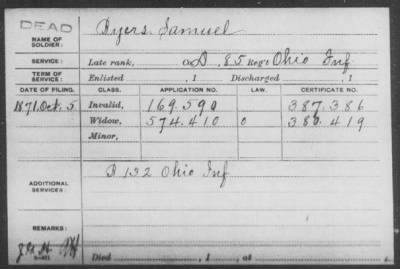 DEAD
NAME OF SOLDIER: Byers Samuel
SERVICE: Late rank, Co D, 85 Reg't Ohio Inf
TERM OF SERVICE: Enlisted , 1 Discharged , 1
DATE OF FILING. CLASS. APPLICATION NO. LAW. CERTIFICATE NO.
1871 Oct. 5 Invalid, 169.590 387.386
Widow, 574.410 0 380.419
Minor,
ADDITIONAL SERVICES: B 132 Ohio Inf
REMARKS:
Died , 1 , at